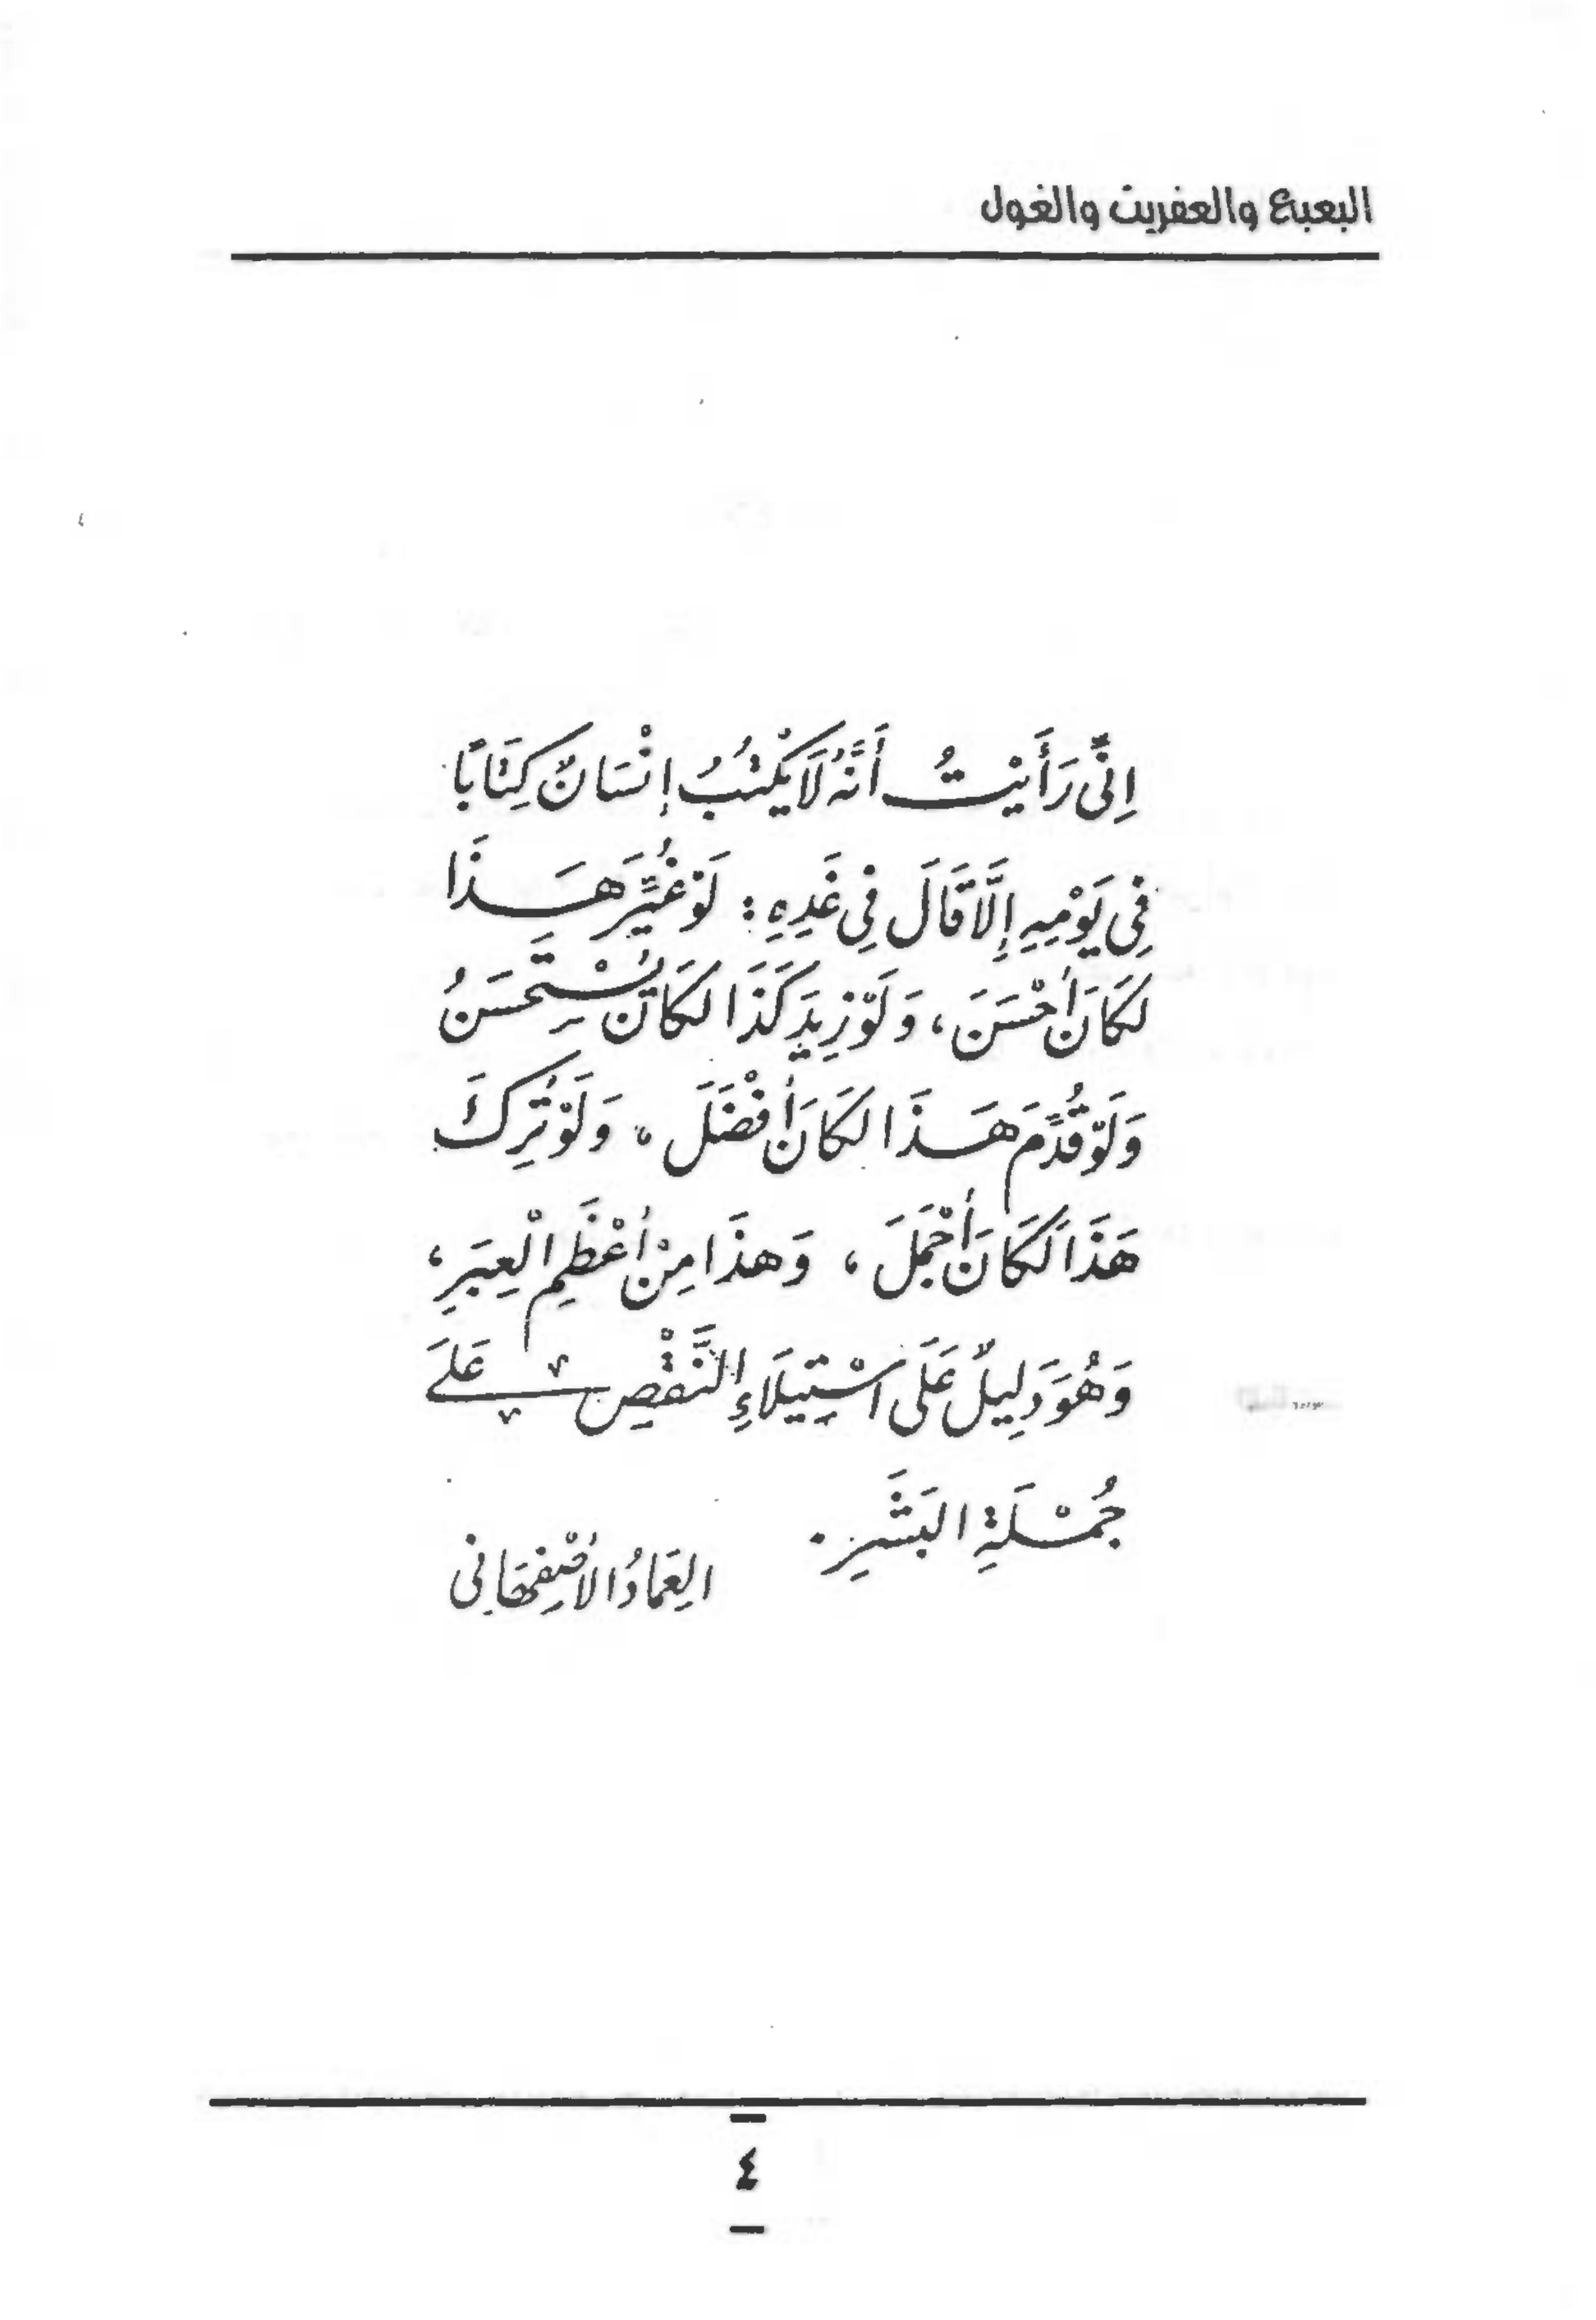 البعبع والعفريت والغول
اِنِّى رَأَيْتُ أَنَّهُ لَا يَكْتُبُ إِنْسَانٌ كِتَابًا
فِى يَوْمِهِ إِلَّا قَالَ فِى غَدِهِ : لَوْ غُيِّرَ هَذَا
لَكَانَ أَحْسَنَ ، وَلَوْ زِيدَ كَذَا لَكَانَ يُسْتَحْسَنُ
وَلَوْ قُدِّمَ هَذَا لَكَانَ أَفْضَلَ ، وَلَوْ تُرِكَ
هَذَا لَكَانَ أَجْمَلَ ، وَهذَا مِنْ أَعْظَمِ الْعِبَرِ ،
وَهُوَ دَلِيلٌ عَلَى اسْتِيلَاءِ النَّقْصِ عَلَى
جُمْلَةِ البَشَرِ .
العِمَادُ الأَصْفَهَانى
٤